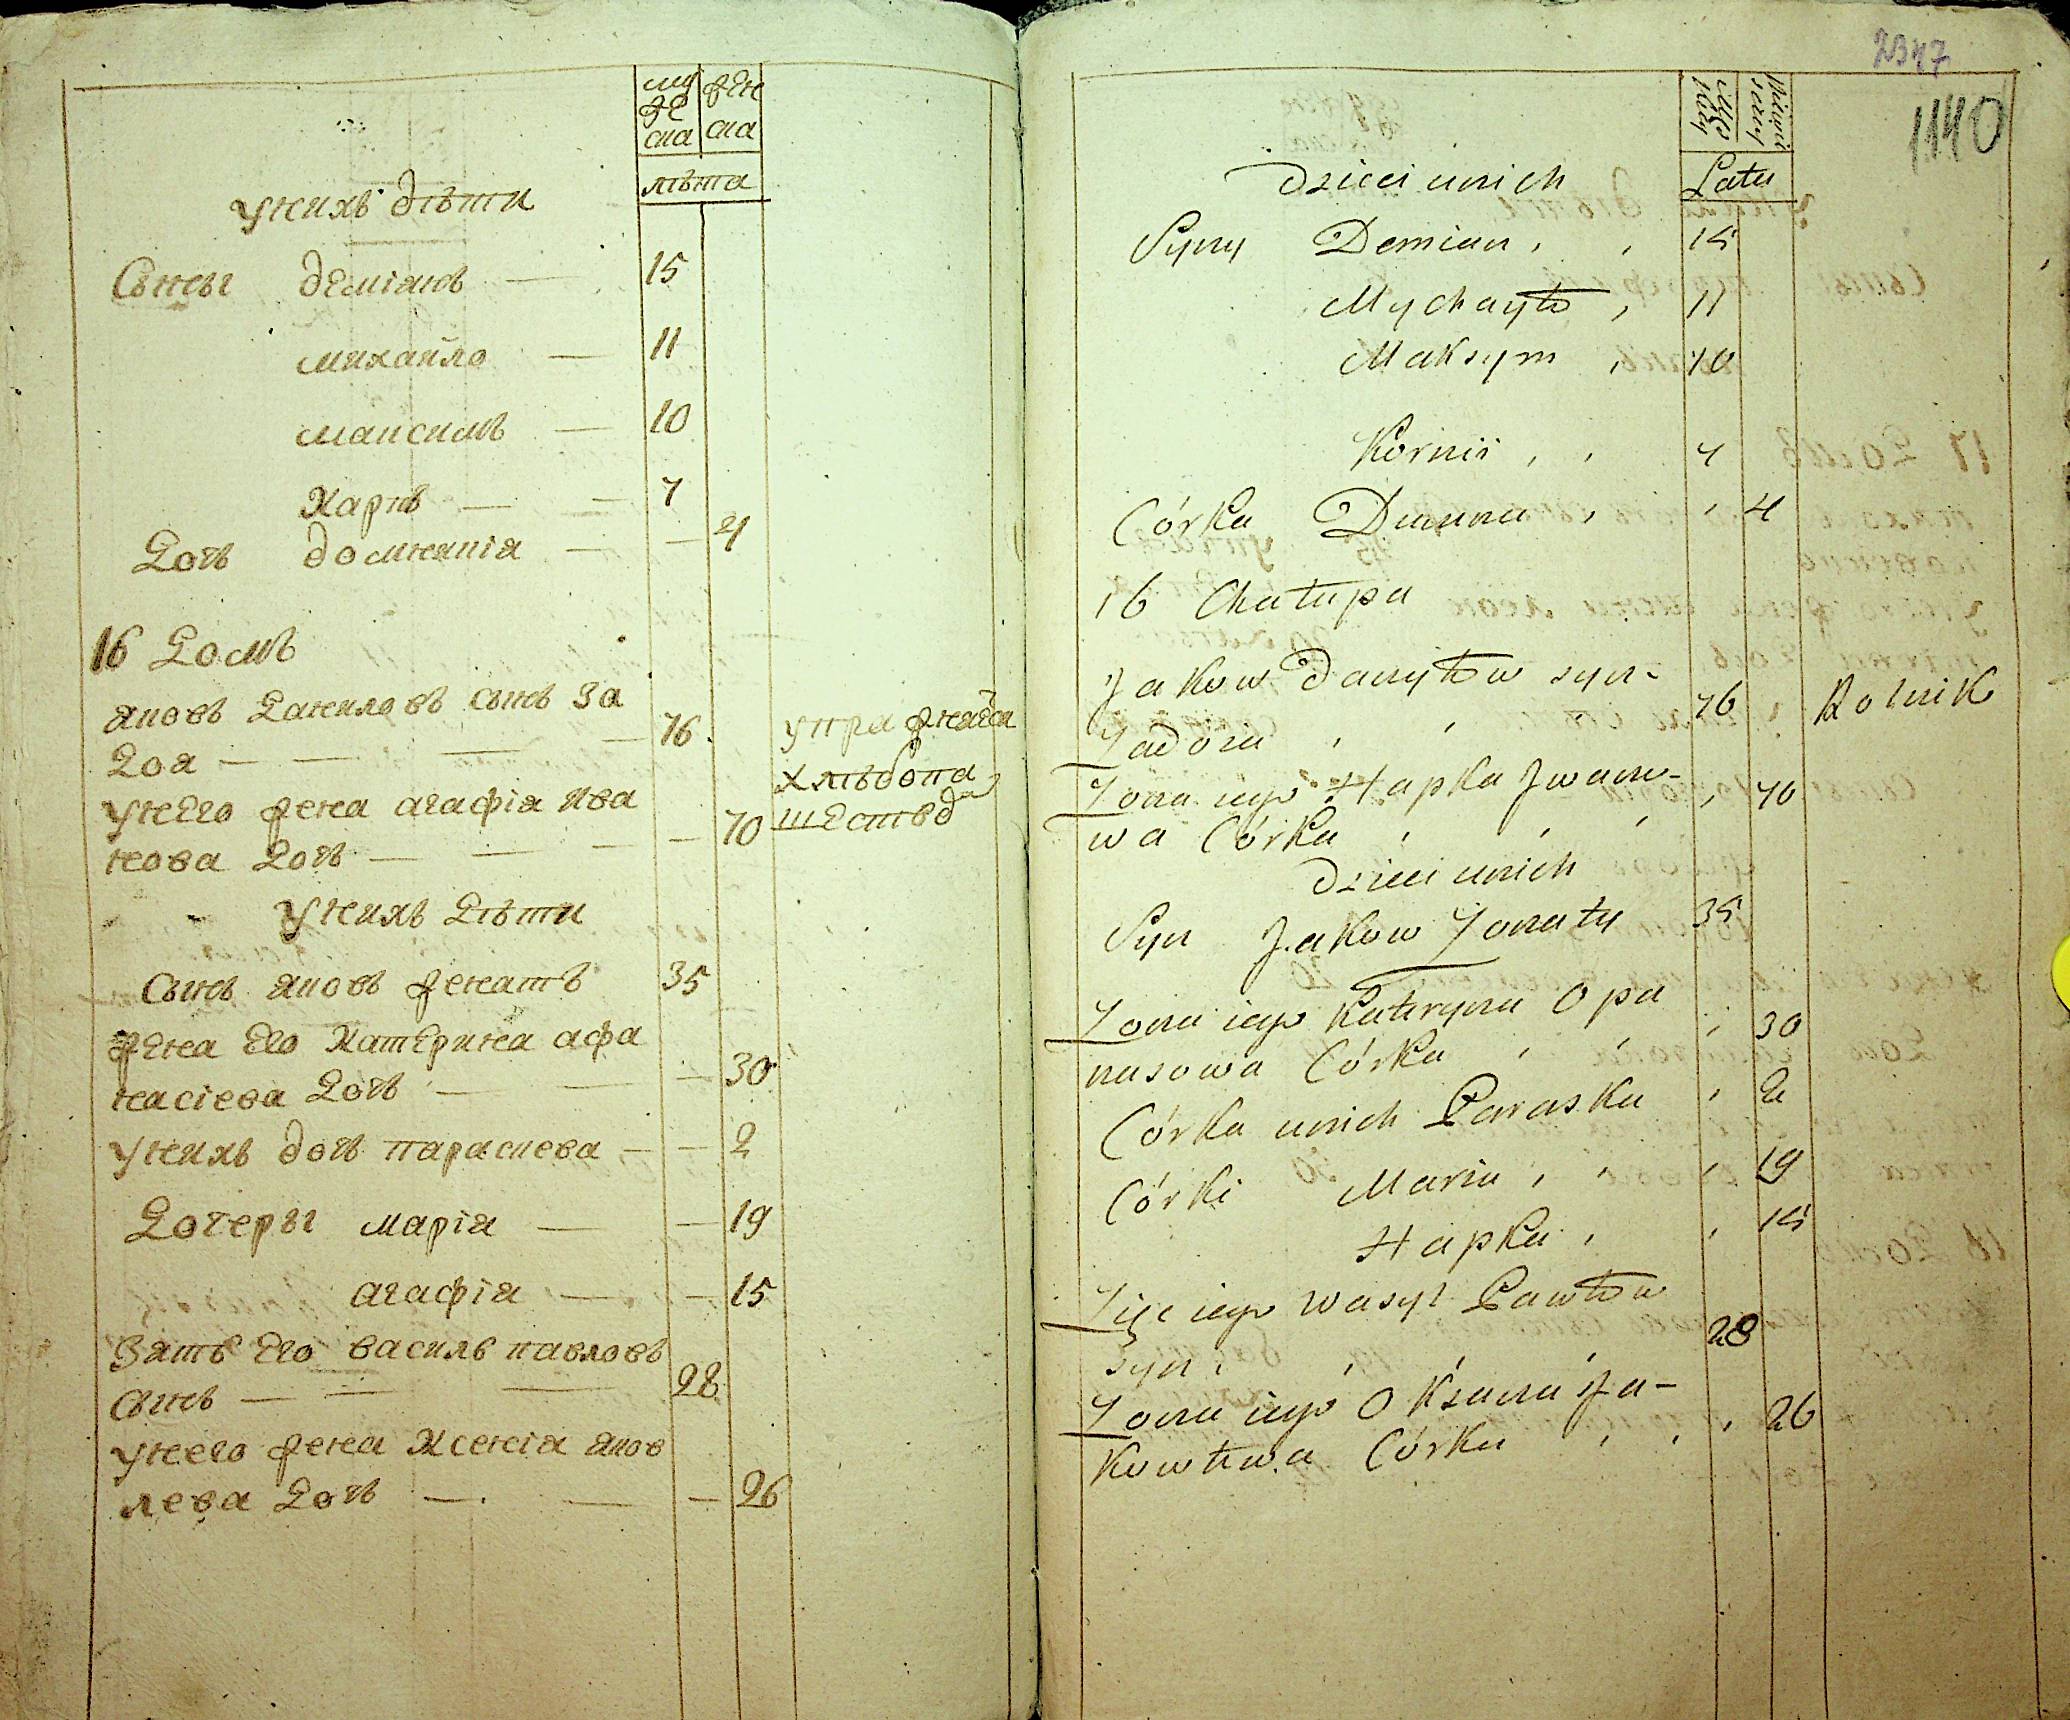 муже
ска
жен
ска
лѣта
У нихъ дѣти
Сыны деміянъ — 15
михайло — 11
максимъ — 10
Карпъ — — 7
Дочь домникія — — 4
16 Домъ
яковъ Даниловъ сынъ За
доя — — — — 76
упражняется
хлѣбопа
шеством
У него жена агафія Ива
нова Дочь — — — — 70
У нихъ Дѣти
Сынъ яковъ женатъ 35
жена Его Катерина афа
насіева Дочь — — — 30
У нихъ дочь параскева — — 2
Дочеры марія — — 19
агафія — — 15
Зять Его василь павловъ
сынъ — — — 28
У него жена Ксенія яков
лева Дочь — — — 26
2347
1140
Męs
kiey
Żeńs
kiey
Lata
Dzieci u nich
Syny Demian , , 15
Mychayło , 11
Maksym , 10
Kornii , , 7
Córka Dunna , , 4
16 Chałupa
Jakow Daniłow syn-
Zadoia , , 76 Rolnik
Zona iego Hapka Jwano-
wa Córka , , , , 70
Dzieci u nich
Syn Jakow Zonaty 35
Zona iego Katryna Opa
nasowa Córka , , , 30
Córka u nich Paraska , 2
Córki Maria , , , 19
Hapka , , 15
Zięć iego Wasyl Pawłow
Syn , , , 28
Zona iego Oksana Ja-
kowłwa Córka , , , 26